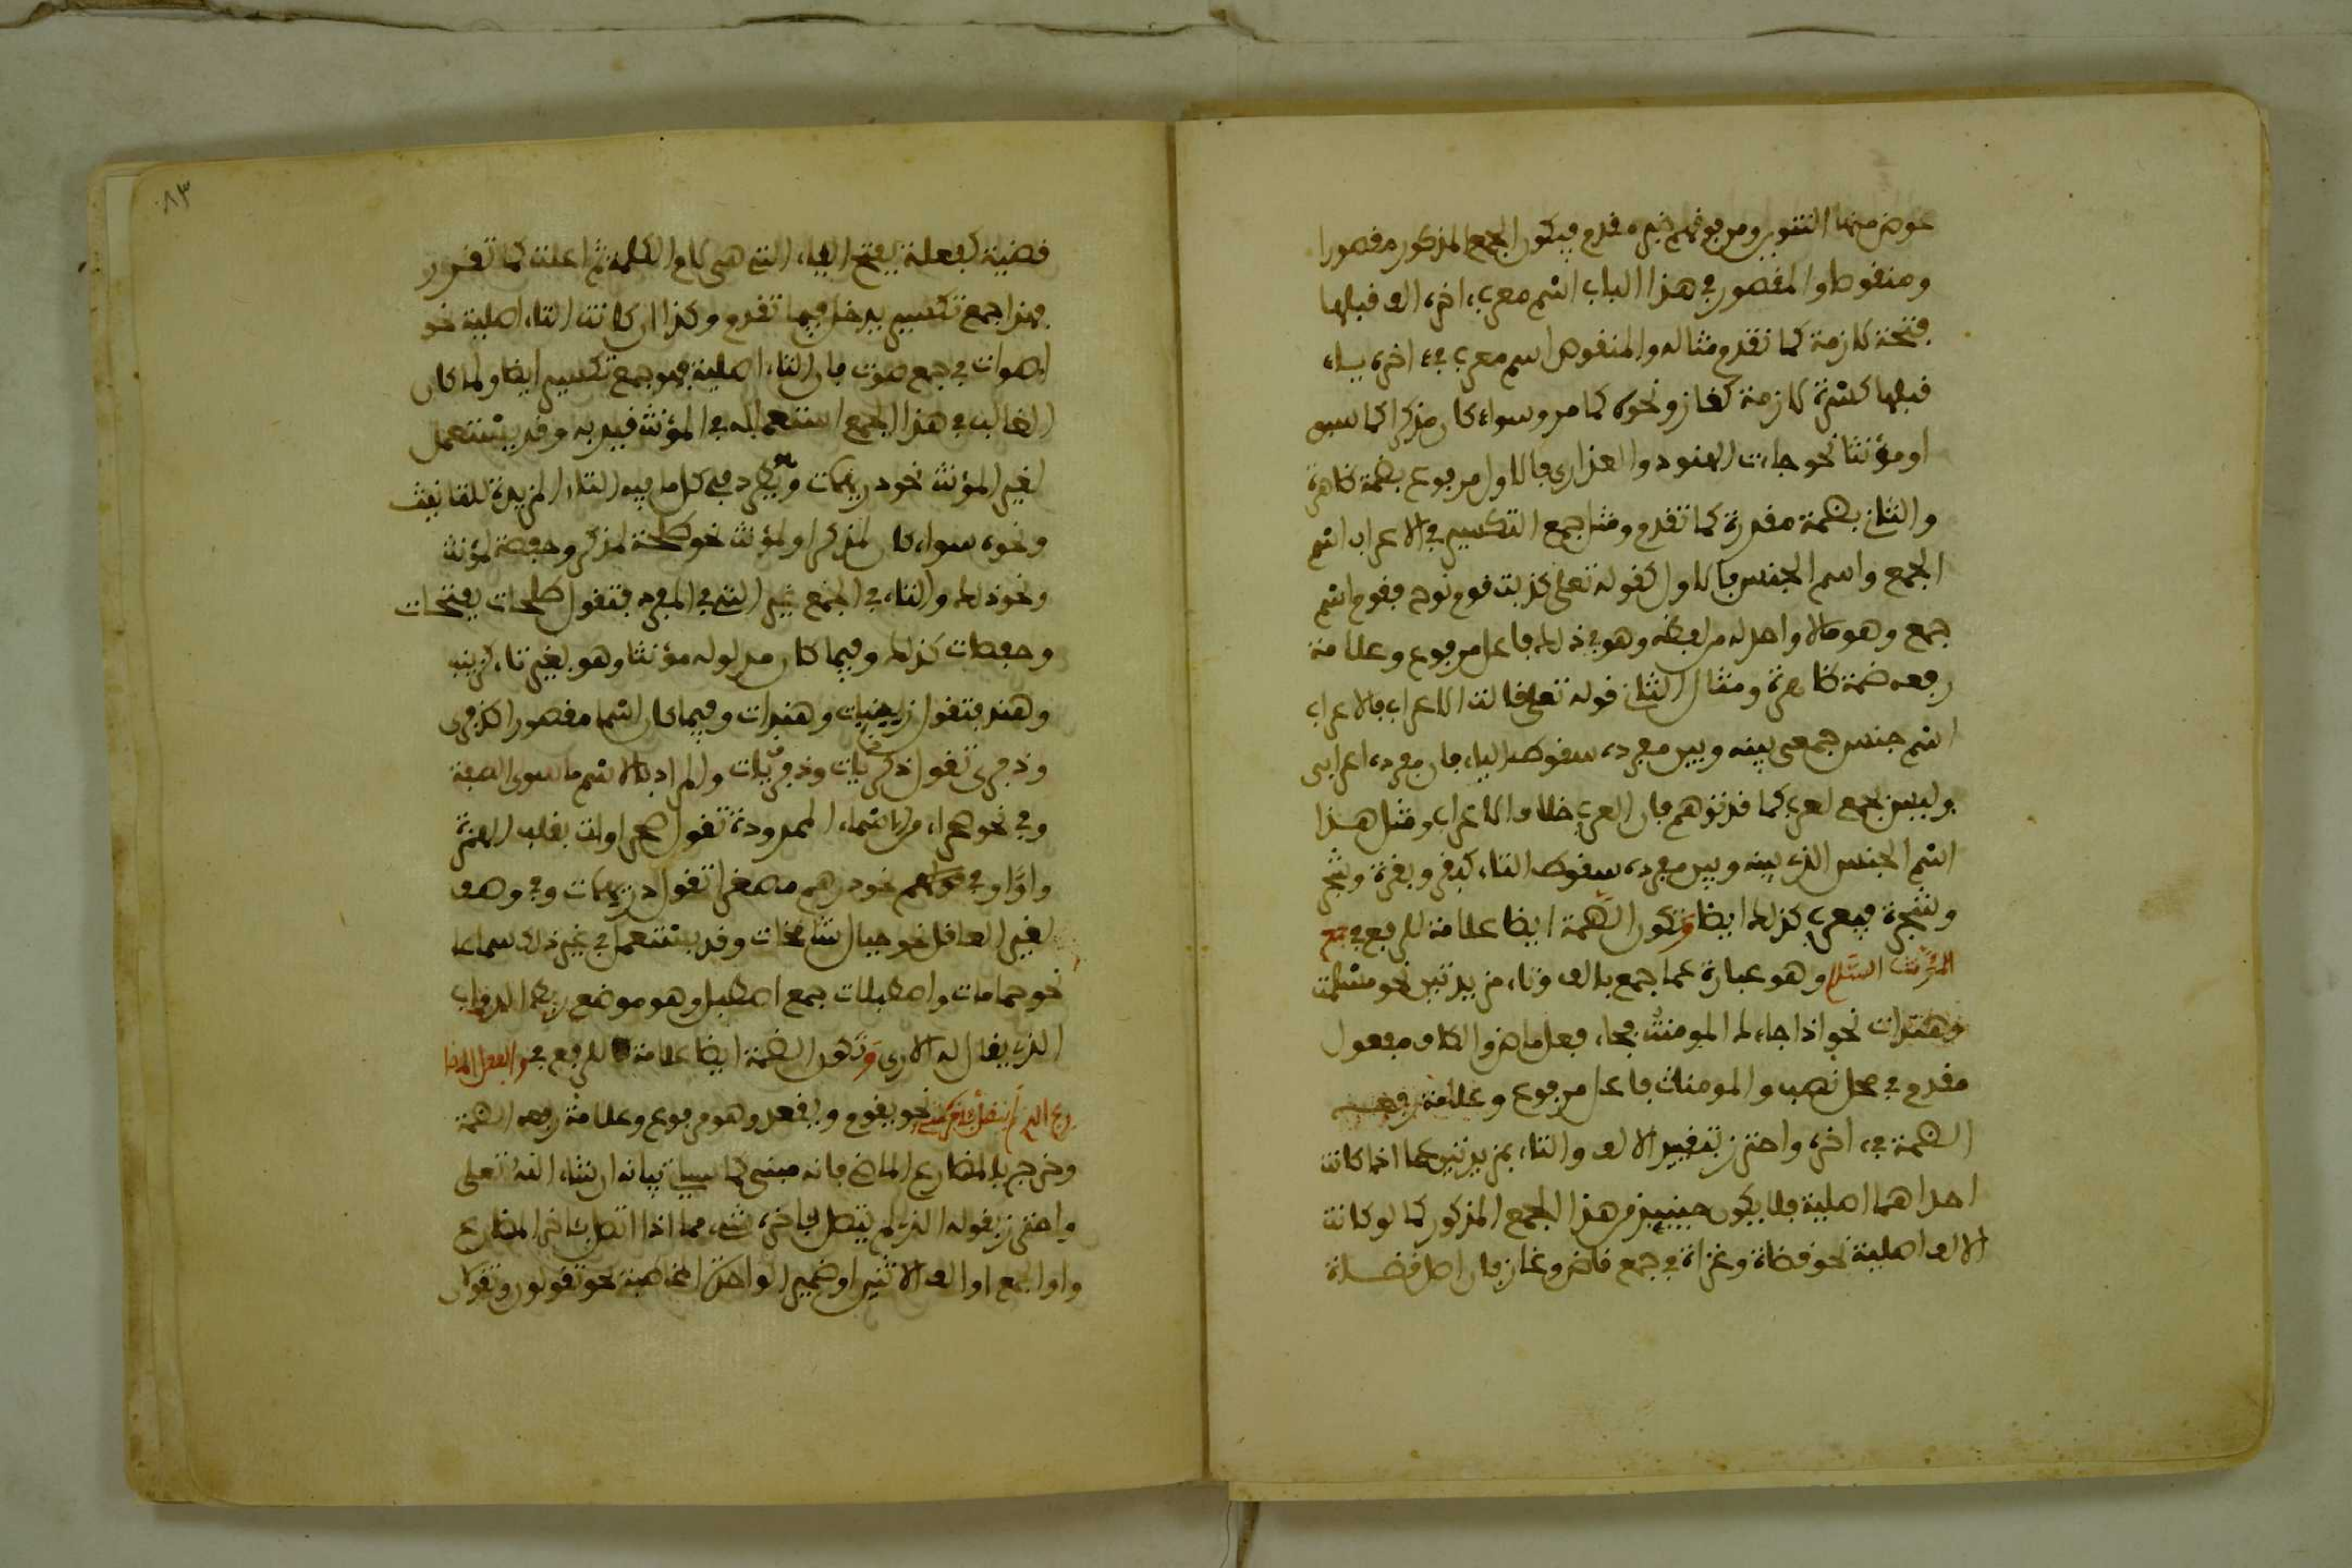 عوض منها التنوين ومن فوقهم خبر مقدم فيكون الجمع المذكور مقصورا
ومنقوصا والمقصور في هذا الباب اسم معرب اخره الف قبلها
فتحة لازمة كما تقدم مثاله والمنقوص اسم معرب في اخره ياء
قبلها كسرة لازمة كغاز ونحوه كما مر وسواء كان مذكرا كما سبق
او مؤنثا نحو جاءت الهنود والعذارى فالاول مرفوع بضمة ظاهرة
والثاني بضمة مقدرة كما تقدم ومثل جمع التكسير في الاعراب اسم
الجمع واسم الجنس فالاول كقوله تعلى كذبت قوم نوح فقوم اسم
جمع وهو ما لا واحد له من لفظه وهو في ذلك فاعل مرفوع وعلامة
رفعه ضمة ظاهرة ومثال الثاني قوله تعلى قالت الاعراب فالاعراب
اسم جنس جمعي بينه وبين مفرده سقوط الياء فان مفرده اعرابى
وليس بجمع لعرب كما قد توهم فان العرب خلاف الاعراب ومثل هذا
اسم الجنس الذي بينه وبين مفرده سقوط التاء كبقر وبقرة وشجر
وشجرة فيعرب كذلك ايضا وتكون الضمة ايضا علامة للرفع في جمع
المؤنث السلم وهو عبارة عما جمع بالف وتاء مزيدتين نحو مسلمت
وهندات نحو اذا جاءك المومنت فجاء فعل ماض والكاف مفعول
مقدم في محل نصب والمومنات فاعل مرفوع وعلامة رفعه
الضمة في اخره واحترز بتقييد الالف والتاء بمزيدتين عما اذا كانت
احداهما اصلية فلا يكون حينئذ من هذا الجمع المذكور كما لو كانت
الالف اصلية نحو قضاة وغزاة في جمع قاض وغاز فان اصل قضاة
٨٣
قضية كفعلة بفتح الياء التي هي لام الكلمة ثم اعلت كما تقرر
فهذا جمع تكسير يدخل فيما تقدم وكذا ان كانت التاء اصلية نحو
اصوات في جمع صوت فان التاء اصلية فهو جمع تكسير ايضا ولما كان
الغالب في هذا الجمع استعماله في المؤنث قيد به وقد يستعمل
لغير المؤنث نحو دريهمات ويطرد في كل ما فيه التاء المزيدة للتانيث
ونحوه سواء كان لمذكر او لمؤنث نحو طلحة لمذكر وحفصة لمؤنث
ونحو ذلك والتاء في الجمع غير التي في المفرد فتقول طلحات بفتحات
وحفصات كذلك وفيما كان مدلوله مؤنثا وهو بغير تاء كزينب
وهند فتقول زينبات وهندات وفيما كان اسما مقصورا كذكرى
وذفرى تقول ذكريات وذفريات والمراد بالاسم ما سوى الصفة
وفي نحو صحراء من الاسماء الممدودة تقول صحراوات بقلب الهمزة
واوا وفي نحو درهم مصغرا تقول دريهمات وفي وصف
لغير العاقل نحو جبال شامخات وقد يستعمل في غير ذلك سماعا
نحو حمامات واصطبلات جمع اصطبل وهو موضع ربط الدواب
الذي يقال له الارى وتكون الضمة ايضا علامة للرفع في والفعل المضا
رع الذي لم يتصل باخره شيء نحو يقوم ويقعد وهو مرفوع وعلامة رفعه الضمة
وخرج بالمضارع الماضي فانه مبنى كما سياتي بيانه ان شاء الله تعلى
واحترز بقوله الذي لم يتصل باخره شيء مما اذا اتصل باخر المضارع
واو الجمع او الف الاثنين او ضمير الواحدة المخاطبة نحو تقولون وتقولان